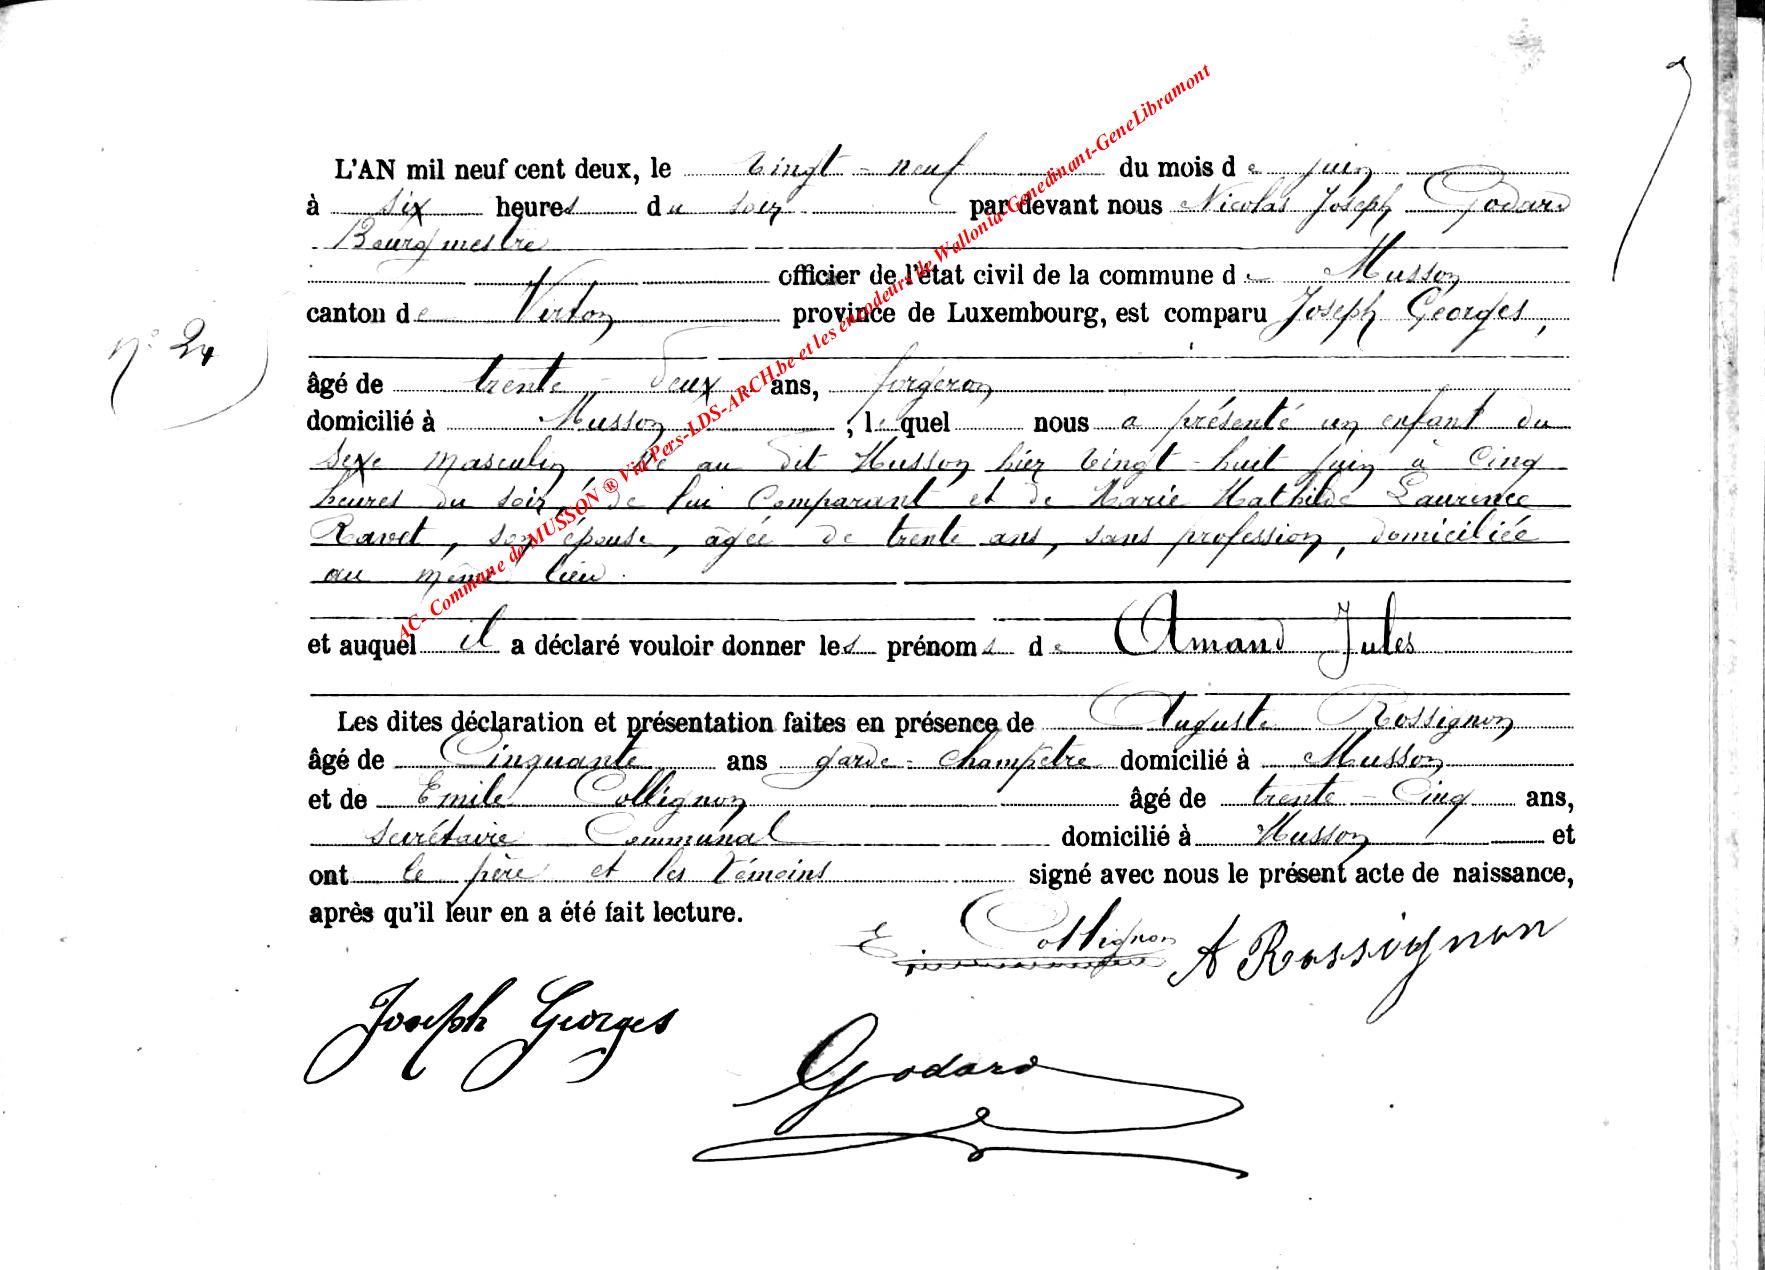 L'AN mil neuf cent deux, le vingt-neuf du mois de juin
à six heures du soir par devant nous Nicolas Joseph Godard
Bourgmestre
officier de l'état civil de la commune de Musson
canton de Virton province de Luxembourg, est comparu Joseph Georges,
n° 24
âgé de trente-deux ans, forgeron
domicilié à Musson ; lequel nous a présenté un enfant du
sexe masculin, né au dit Musson hier vingt-huit juin à cinq
heures du soir, de lui comparant et de Marie Mathilde Laurence
Ravet, son épouse, agée de trente ans, sans profession, domiciliée
au même lieu.
et auquel il a déclaré vouloir donner les prénoms de Amand Jules
Les dites déclaration et présentation faites en présence de Auguste Rossignon
âgé de Cinquante ans garde-champêtre domicilié à Musson
et de Emile Collignon âgé de trente-cinq ans,
secrétaire communal domicilié à Musson et
ont le père et les témoins signé avec nous le présent acte de naissance,
après qu'il leur en a été fait lecture.
E. Collignon A Rossignon
Joseph Georges
Godard
AC- Commune de MUSSON ® Via Pers-LDS-ARCH.be et les encodeurs de Wallonia-Genedinant-GeneLibramont